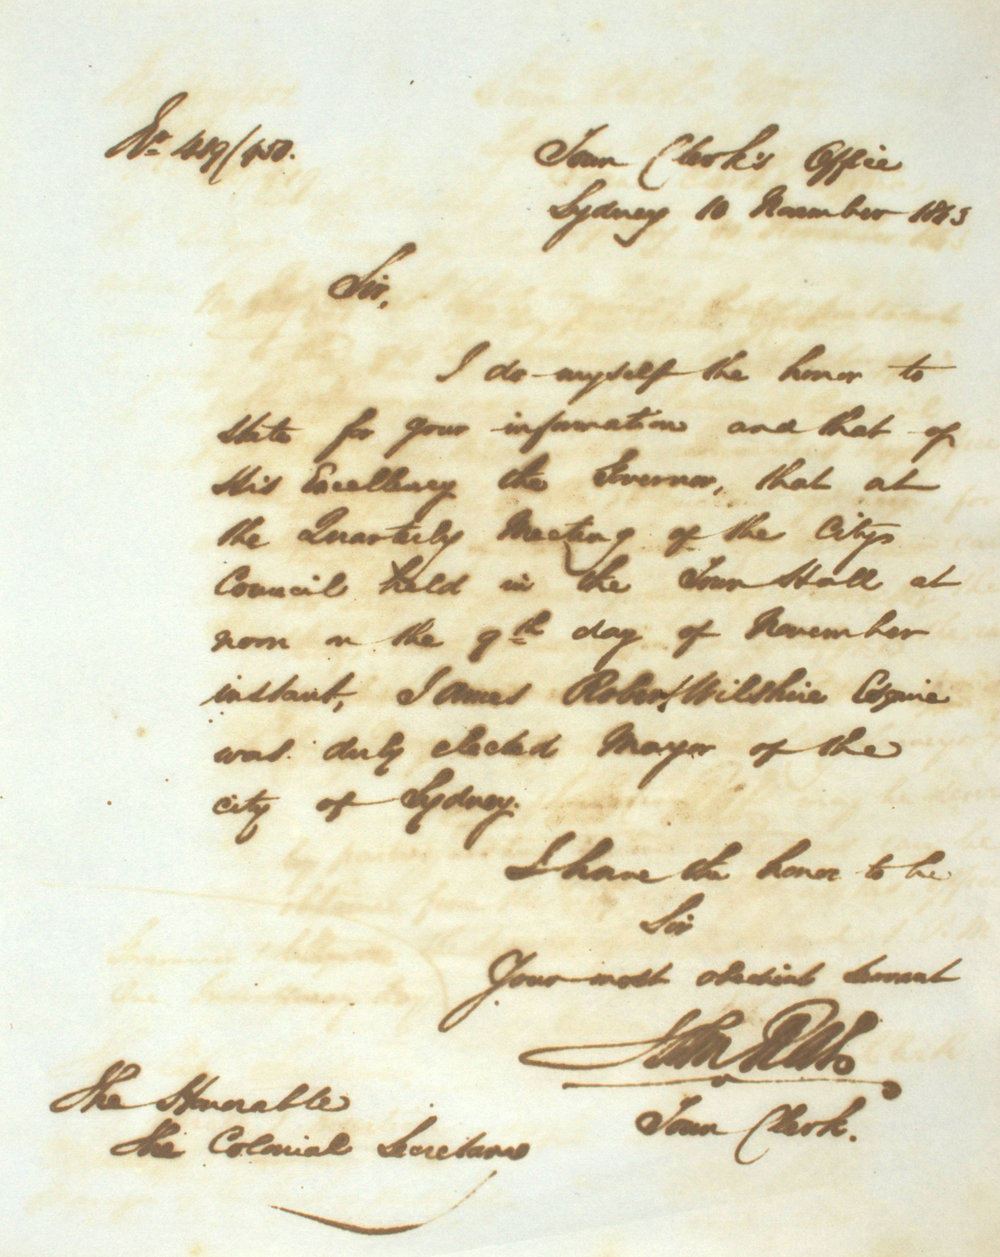 No 449/450.
Town Clerk's Office
Sydney 10 November 1843
Sir,
I do myself the honor to
state for your information and that of
His Excellency the Governor, that at
the Quarterly Meeting of the City
Council held in the Town Hall at
noon on the 9th day of November
instant, James Robert Wilshire Esquire
was duly elected Mayor of the
city of Sydney.
I have the honor to be
Sir
Your most obedient servant
John
Town Clerk.
The Honorable
the Colonial Secretary